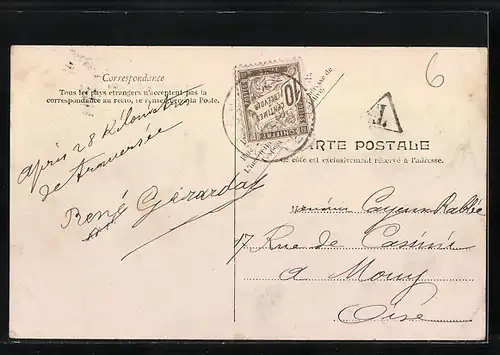 Correspondance
Tous les pays étrangers n'acceptent pas la
correspondance au recto, se renseigner à la Poste.
après 28 Kilomètres
de traversée
René Gérardot
6
10
CENTIMES
À PERCEVOIR
T
CARTE POSTALE
Ce côté est exclusivement réservé à l'adresse.
Cayeux
17 Rue de Cassini
a Mouy
Oise